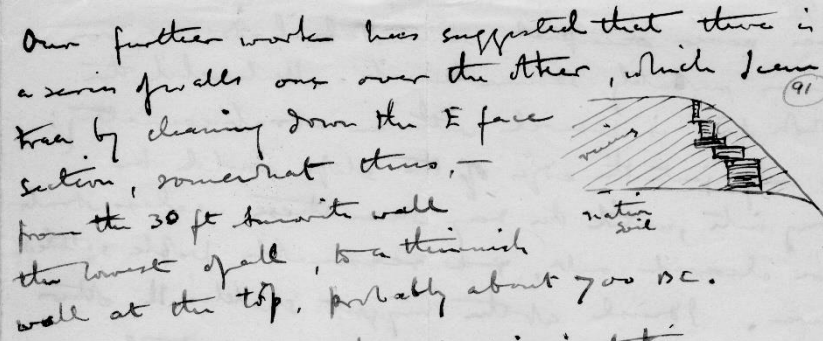 Our further work has suggested that there is
a series of walls one over the other, which I can
91
trace by cleaning down the E face
section, somewhat thus, —
ruins
from the 30 ft burnt wall
native
soil
the lowest of all, to a thinnish
wall at the top, probably about 700 BC.